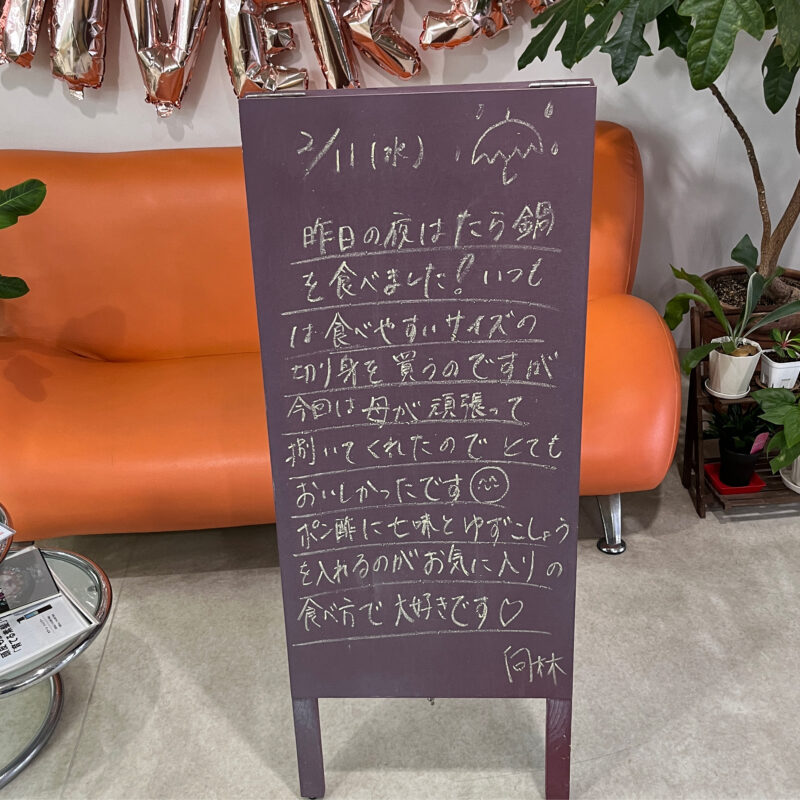 2/11(水)
昨日の夜はたら鍋
を食べました!いつも
は食べやすいサイズの
切り身を買うのですが
今回は母が頑張って
捌いてくれたのでとても
おいしかったです
ポン酢に七味とゆずこしょう
を入れるのがお気に入りの
食べ方で大好きです♡
向林